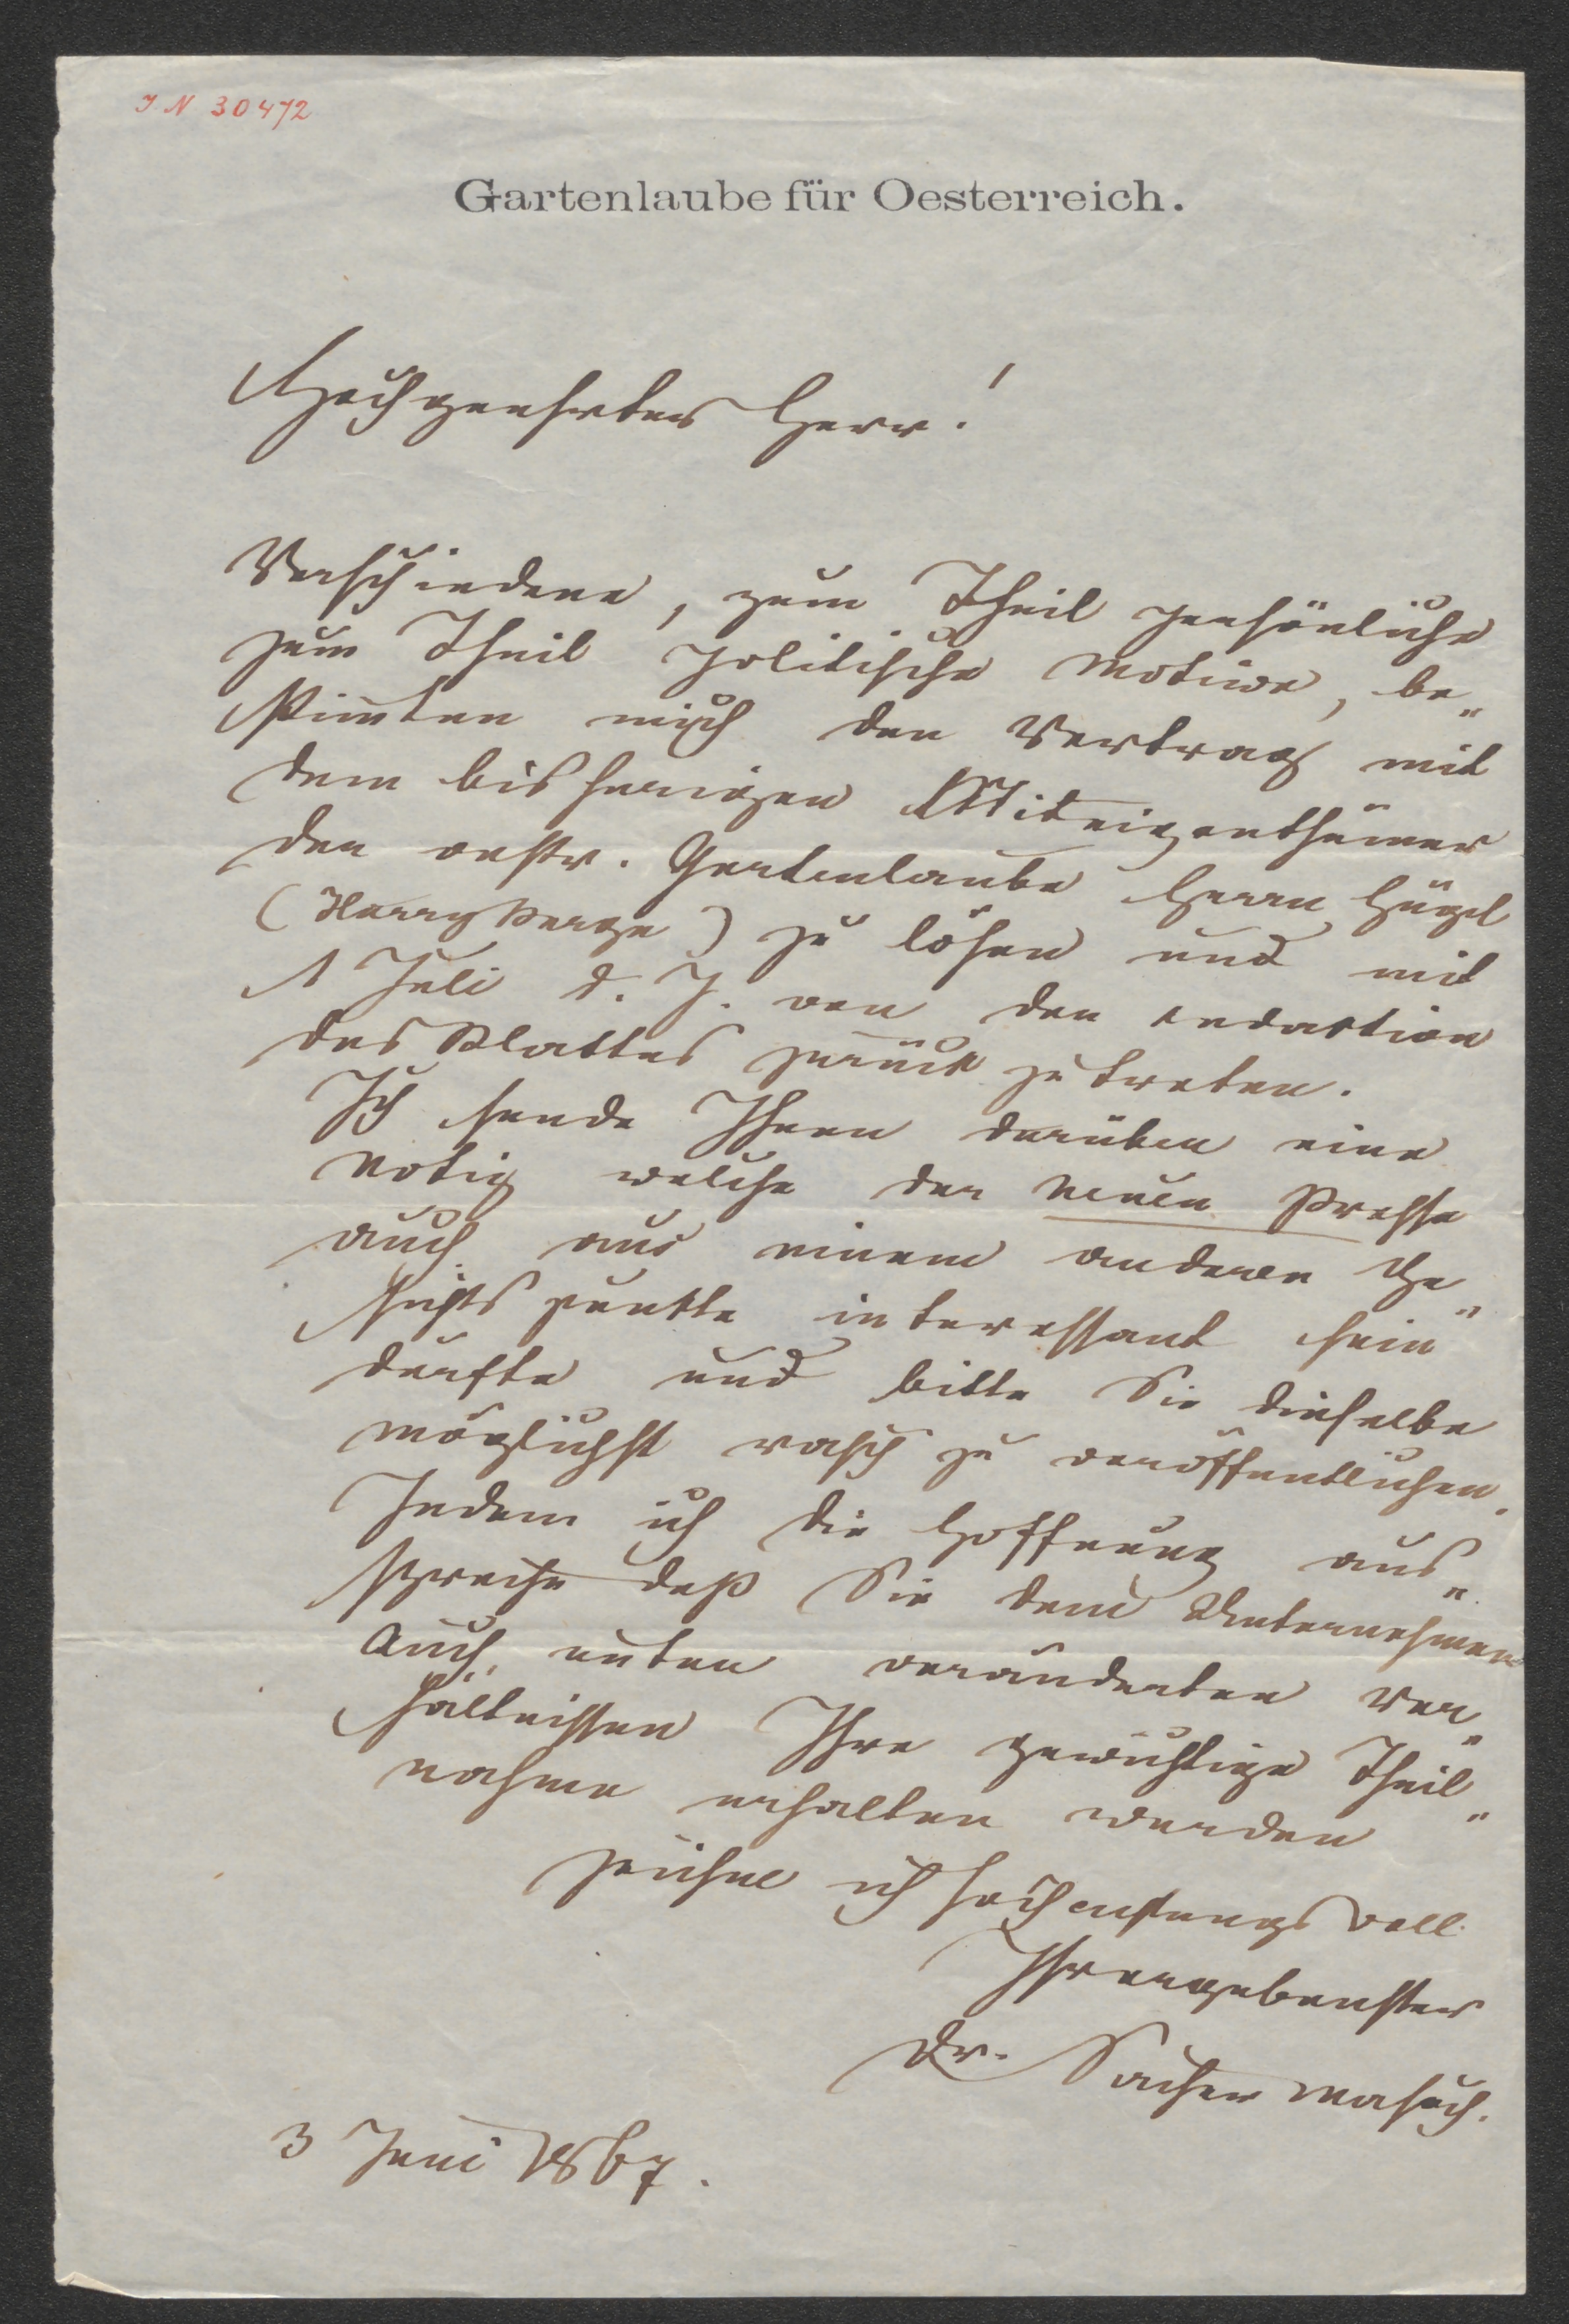 I N 30472
Gartenlaube für Oesterreich.
Hochgeehrter Herr!
Verschiedene, zum Theil persönliche
zum Theil politische Motive, be„
stim̄ten mich den Vertrag mit
dem bisherigen Miteigenthümer
der oestr. Gartenlaube Herrn Hügel
(Harry Berge) zu lösen und mit
1 Juli d. J. von der Redaction
des Blattes zurück zu treten.
Ich sende Ihnen darüber eine
Notiz welche der neuen Presse
auch aus einem anderen Ge„
sichtspunkte interessant sein
dürfte und bitte Sie dieselbe
möglichst rasch zu veröffentlichen.
Indem ich die Hoffnung aus„
spreche daß Sie dem Unternehmen
auch unter veränderten Ver„
hältnissen Ihre gewichtige Theil„
nahme erhalten werden
zeichne ich hochachtungsvoll
Ihr ergebenster
Dr. Sacher Masoch.
3 Juni 1867.